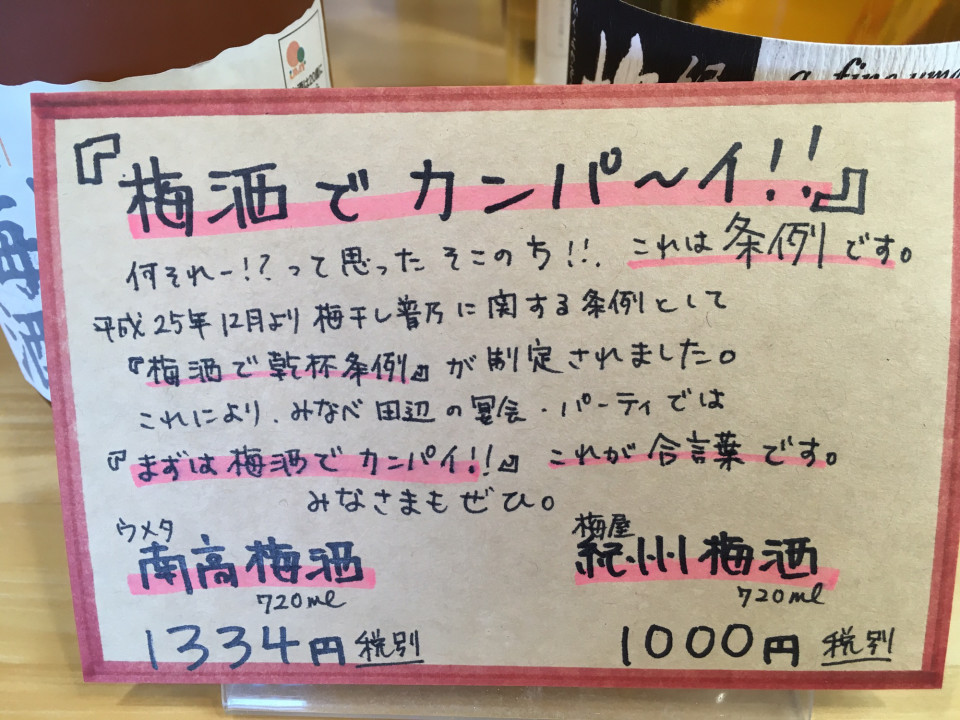 『梅酒でカンパ～イ!!』
何それー!?って思ったそこのち!!. これは条例です。
平成25年12月より梅干し普及に関する条例として
『梅酒で乾杯条例』が制定されました。
これにより、みなべ田辺の宴会・パーティでは
『まずは梅酒でカンパイ!!』これが合言葉です。
みなさまもぜひ。
ウメタ
南高梅酒
720ml
1334円 税別
梅屋
紀州梅酒
720ml
1000円 税別